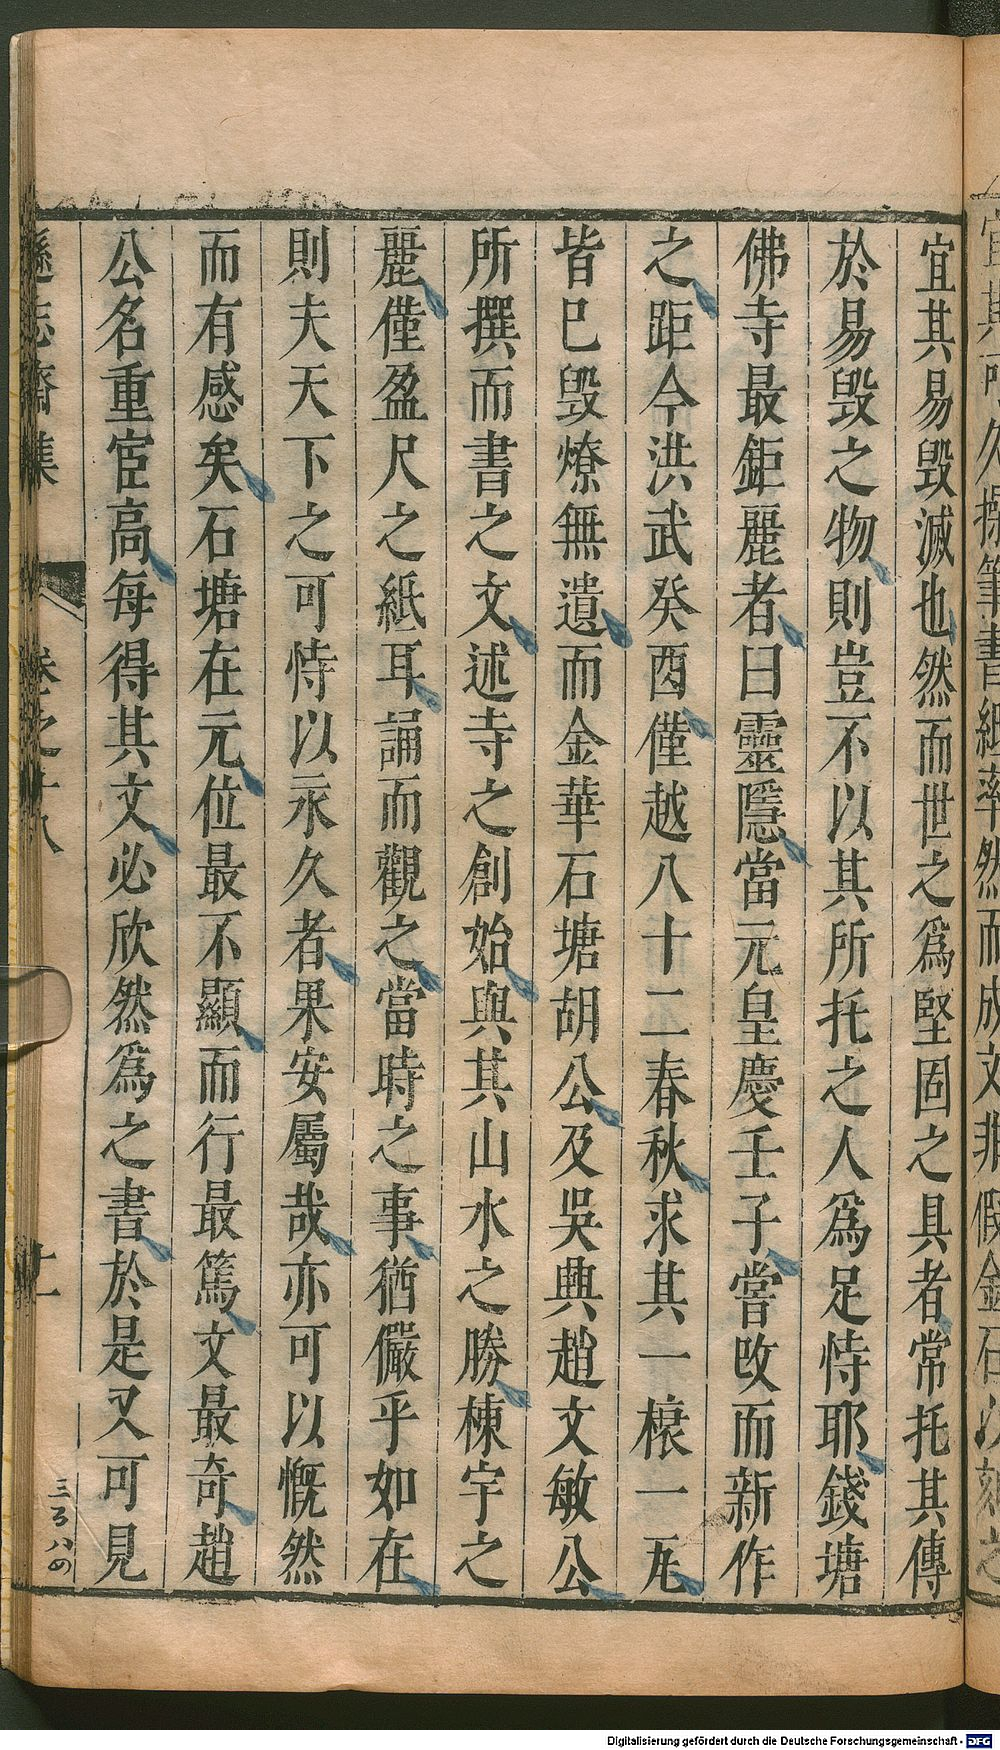 宜其易毀滅也然而世之爲堅固之具者常托其傳
於易毀之物則豈不以其所托之人爲足恃耶錢塘
佛寺最鉅麗者曰靈隱當元皇慶壬子嘗改而新作
之距今洪武癸酉僅越八十二春秋求其一榱一瓦
皆已毀燎無遺而金華石塘胡公及吳興趙文敏公
所撰而書之文述寺之創始與其山水之勝棟宇之
麗僅盈尺之紙耳誦而觀之當時之事猶儼乎如在
則夫天下之可恃以永久者果安屬哉亦可以慨然
而有感矣石塘在元位最不顯而行最篤文最奇趙
公名重宦高每得其文必欣然爲之書於是又可見
遜志齋集
卷之十八
十一
三百八四
Digitalisierung gefördert durch die Deutsche Forschungsgemeinschaft - DFG